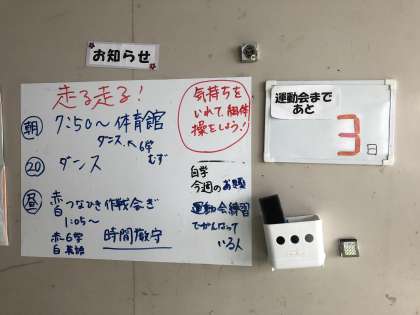 お知らせ
走る走る!
朝 7:50〜体育館
ダンス、大
20 ダンス
昼 赤白 つなひき作戦会ぎ
1:05〜
時間厳守
気持ちを
いれて、組体
操をしよう!
自学
今週のお題
運動会練習
でがんばって
いる人
運動会まで
あと
3日